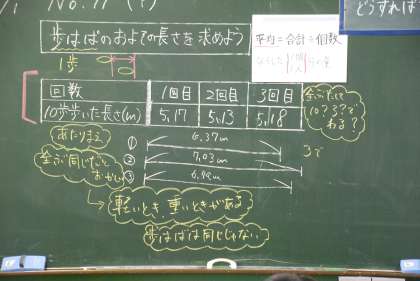 No.11
歩はばのおよその長さを求めよう
平均=合計÷個数
1歩
回数 1回目 2回目 3回目
10歩歩いた長さ(m) 5.17 5.13 5.18
全ぶたして
10?3?で
わる?
あたりまえ
① 6.37m
3で
全ぶ同じなら
おかしい
② 7.03m
③
軽いとき、重いときがある
歩はばは同じじゃない
どうすれば